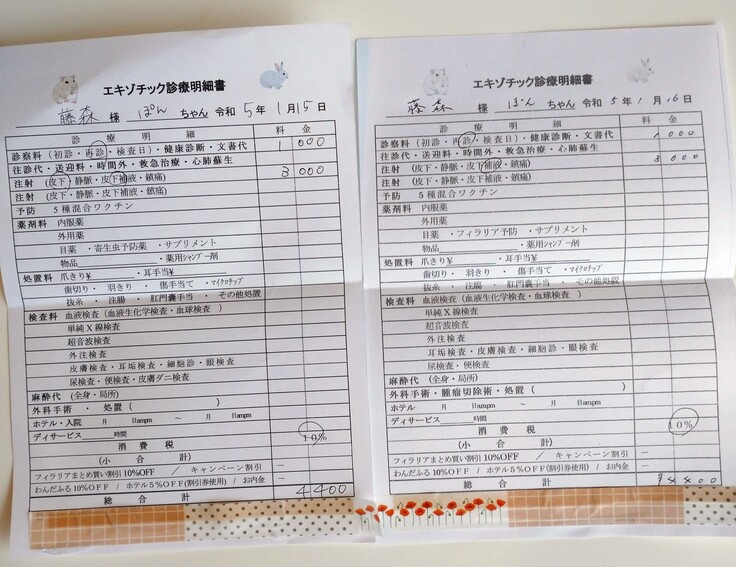 エキゾチック診療明細書
藤森 様 ぽん ちゃん 令和 5年 1月15日
診 療 明 細 料 金
診察料 (初診・再診・検査日)・健康診断・文書代 1 000
往診代・送迎料・時間外・救急治療・心肺蘇生
注射 (皮下・静脈・皮下補液・鎮痛) 3 000
注射 (皮下・静脈・皮下補液・鎮痛)
予防 5種混合ワクチン
薬剤料 内服薬
外用薬
目薬 ・寄生虫予防薬 ・サプリメント
物品 ・薬用シャンプー剤
処置料 爪きり¥ ・耳手当¥
歯切り・ 羽きり ・ 傷手当て ・マイクロチップ
抜糸 ・ 注腸 ・肛門嚢手当 ・ その他処置
検査料 血液検査(血液生化学検査・血球検査 )
単純X線検査
超音波検査
外注検査
皮膚検査・耳垢検査・細胞診・眼検査
尿検査・便検査・皮膚ダニ検査
麻酔代 (全身・局所)
外科手術 ・ 処置 ( )
ホテル・入院 月 日ampm ~ 月 日ampm
ディサービス 時間
消 費 税 10%
(小 合 計)
フィラリアまとめ買い割引10%OFF / キャンペーン割引 −
わんだふる10%OFF / ホテル5%OFF(割引券使用) / お内金 −
総 合 計 4400
エキゾチック診療明細書
藤森 様 ぽん ちゃん 令和 5年 1月16日
診 療 明 細 料 金
診察料 (初診・再診・検査日)・健康診断・文書代 1 000
往診代・送迎料・時間外・救急治療・心肺蘇生
注射 (皮下・静脈・皮下補液・鎮痛) 3 000
注射 (皮下・静脈・皮下補液・鎮痛)
予防 5種混合ワクチン
薬剤料 内服薬
外用薬
目薬 ・フィラリア予防 ・サプリメント
物品 ・薬用シャンプー剤
処置料 爪きり¥ ・耳手当¥
歯切り ・ 羽きり ・ 傷手当て ・マイクロチップ
抜糸 ・ 注腸 ・ 肛門嚢手当 ・ その他処置
検査料 血液検査(血液生化学検査・血球検査 )
単純X線検査
超音波検査
外注検査
耳垢検査・皮膚検査・細胞診・眼検査
尿検査・便検査
麻酔代 (全身・局所)
外科手術・腫瘤切除術・処置 ( )
ホテル 月 日ampm ~ 月 日ampm
ディサービス 時間
消 費 税 10%
(小 合 計)
フィラリアまとめ買い割引10%OFF / キャンペーン割引 −
わんだふる10%OFF / ホテル5%OFF(割引券使用) / お内金 −
総 合 計